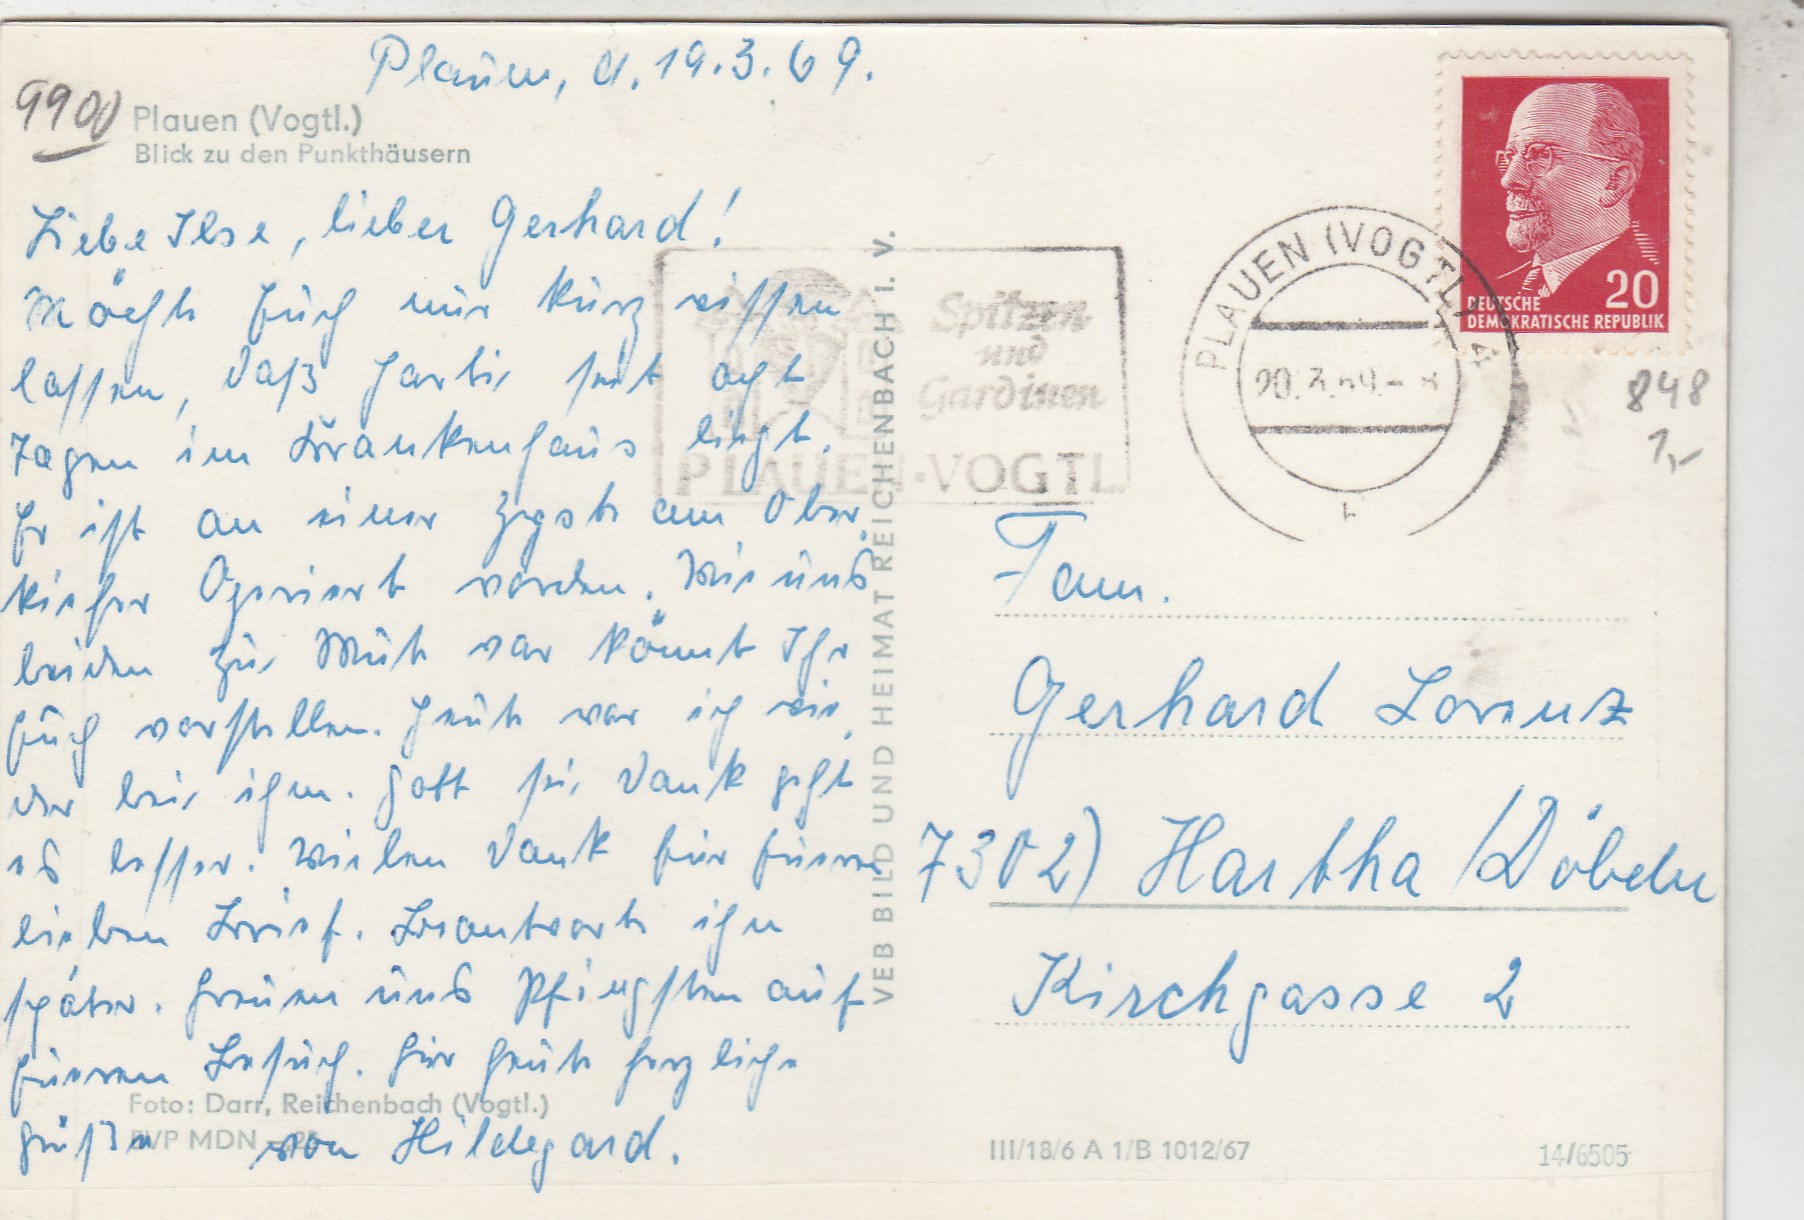 Plauen, d. 19.3.69.
9900
Plauen (Vogtl.)
Blick zu den Punkthäusern
Liebe Ilse, lieber Gerhard!
Möchte Euch nur kurz wissen
lassen, daß Harti seit acht
Tagen im Krankenhaus liegt.
Er ist an einer Zyste am Ober
kiefer Operiert worden. Wie uns
beiden zu Mute war könnt Ihr
Euch vorstellen. Heute war ich wie,
der bei ihm. Gott sei Dank geht
es besser. Vielen Dank für Eueren
lieben Brief. Beantworte ihn
später. Freuen uns Pfingsten auf
Eueren Besuch. Für heute herzliche
Grüße von Hildegard.
Foto: Darr, Reichenbach (Vogtl.)
EVP MDN -,25
VEB BILD UND HEIMAT REICHENBACH I. V.
Spitzen
und
Gardinen
PLAUEN·VOGTL
PLAUEN (VOGTL) 4
20.3.69.-8
DEUTSCHE
DEMOKRATISCHE REPUBLIK
20
848
1,-
Fam.
Gerhard Lorenz
7302) Hartha /Döbeln
Kirchgasse 2
III/18/6 A 1/B 1012/67
14/6505